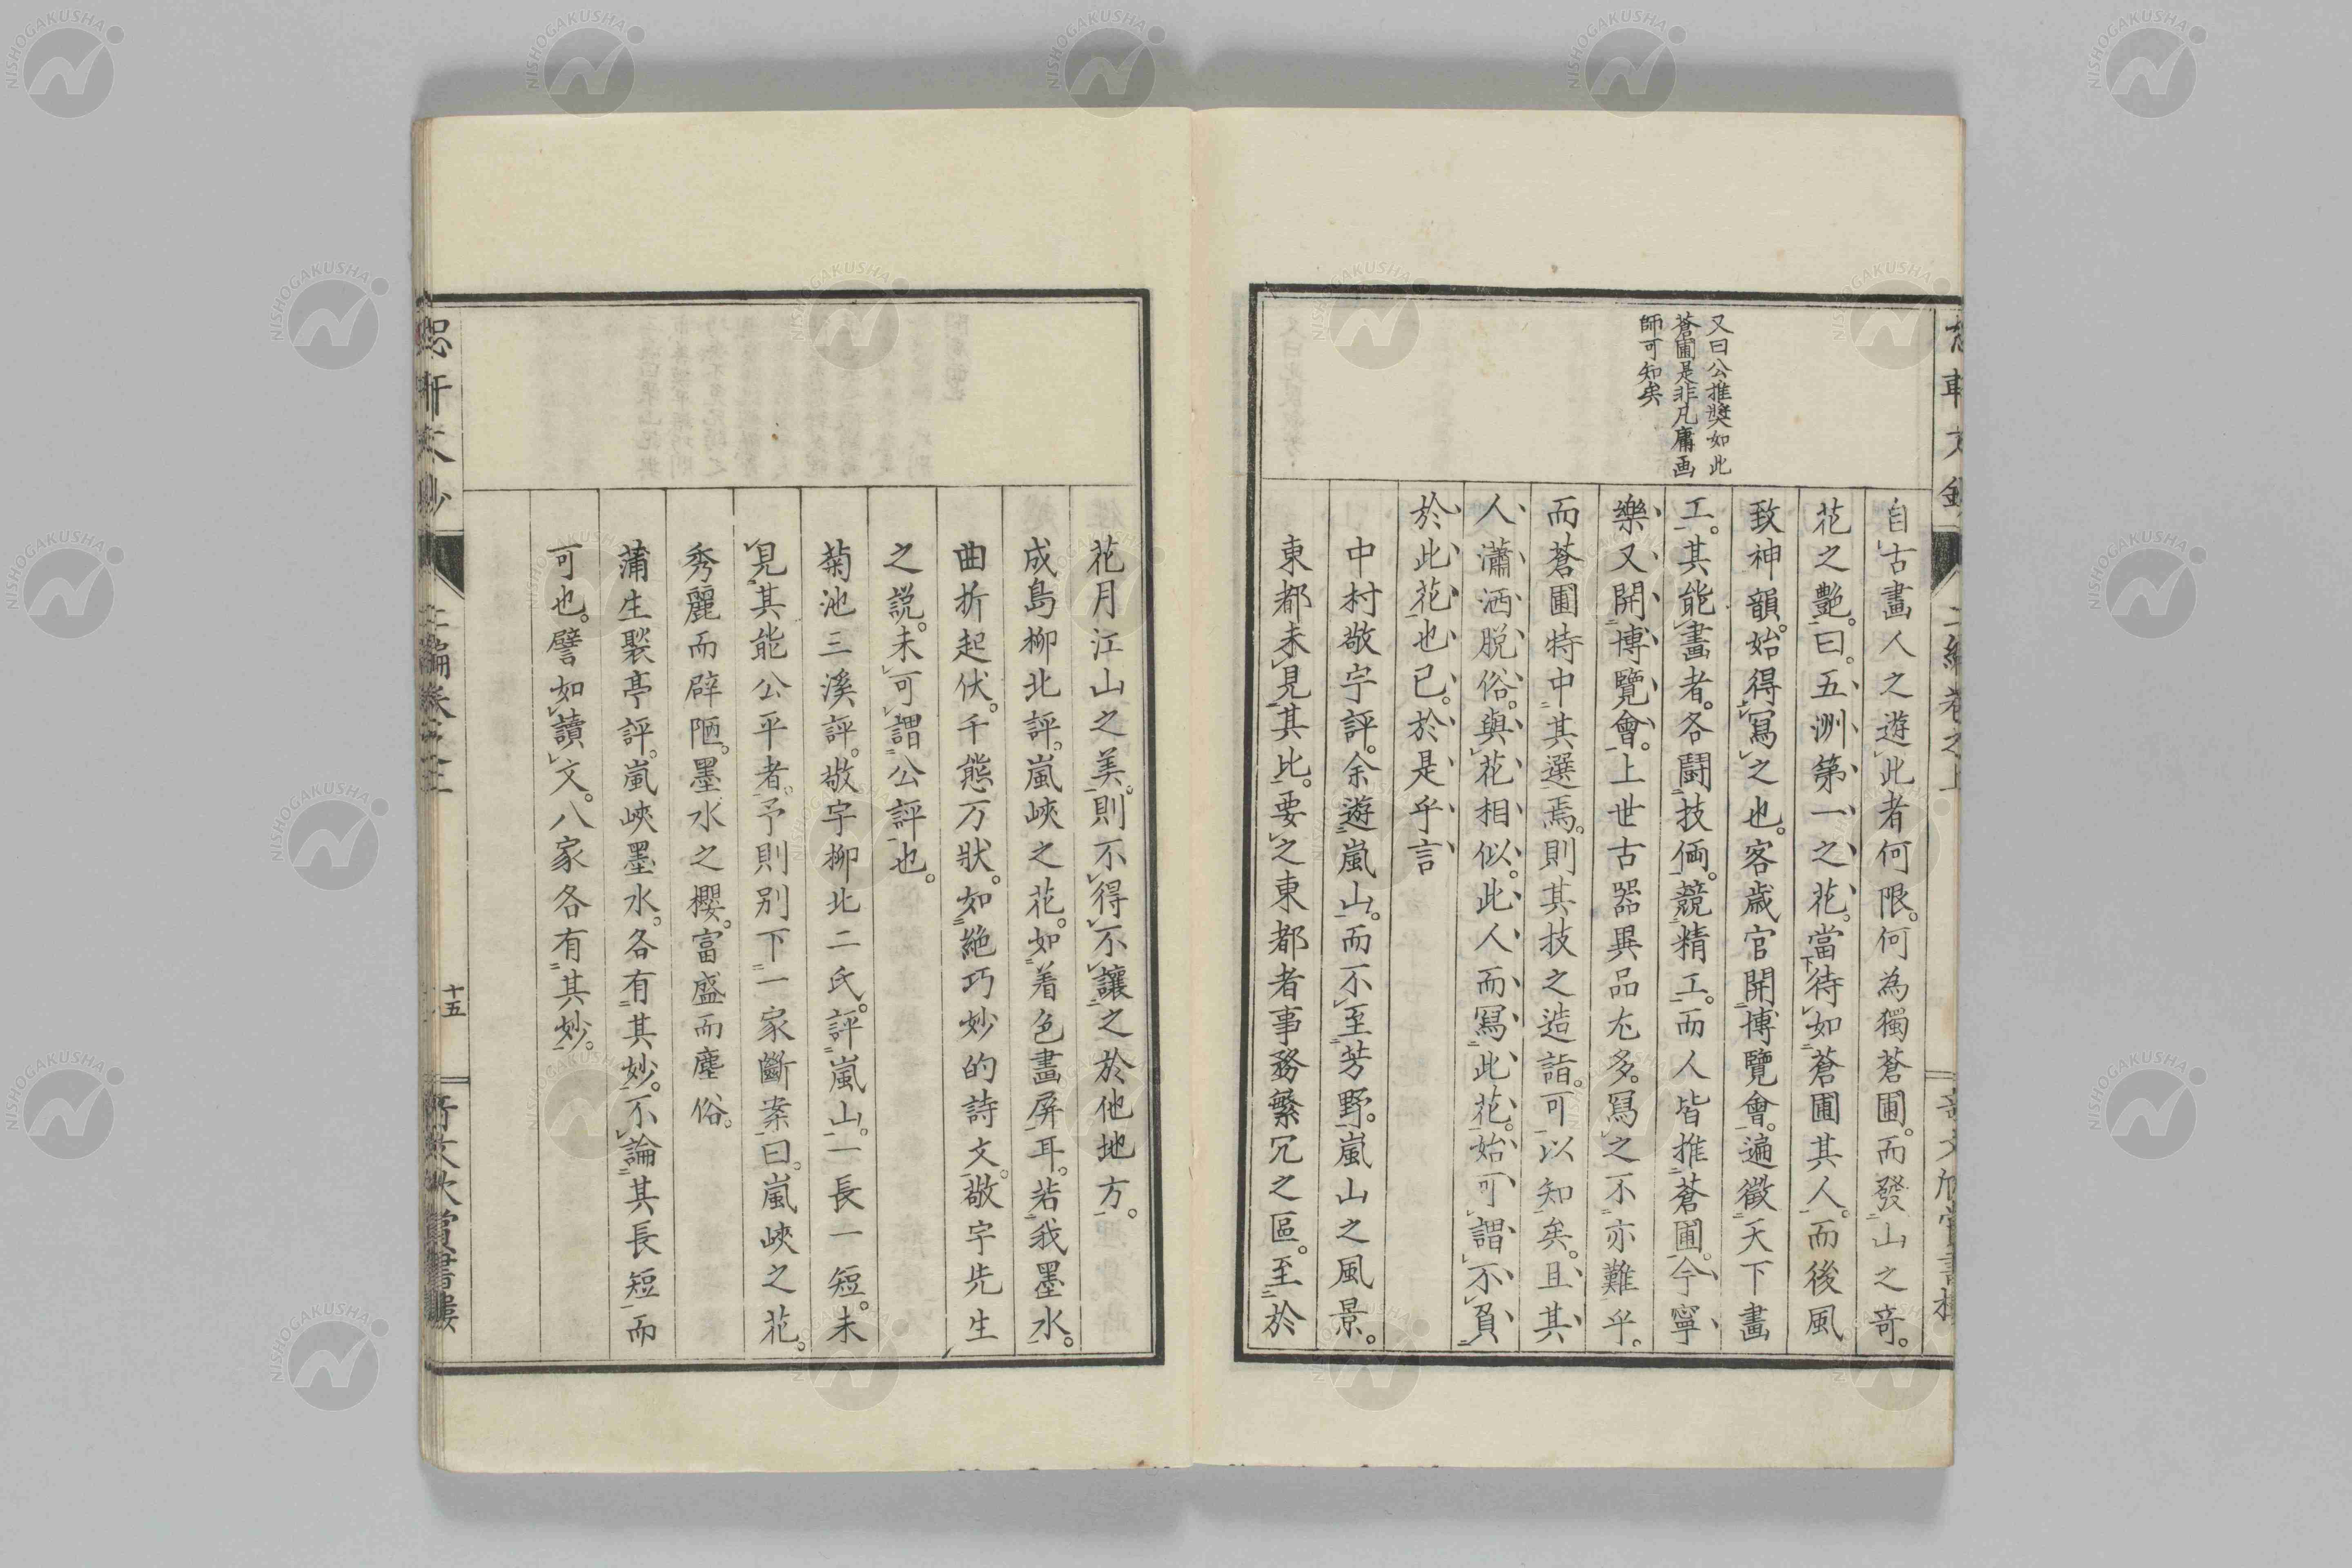 又曰公推奬如此
蒼圃是非凡庸画
師可知矣
自古畫人之遊此者何限。何為獨蒼圃。而發山之竒。
花之艶。曰。五洲第一之花。當待如蒼圃其人。而後風
致神韻。始得寫之也。客歳官開博覽會。遍徵天下畫
工。其能畫者。各鬪技倆。競精工。而人皆推蒼圃。今寧
樂又開博覽會。上世古器異品尤多。寫之不亦難乎。
而蒼圃特中其選焉。則其技之造詣。可以知矣。且其
人瀟洒脱俗。與花相似。此人而寫此花。始可謂不負
於此花也已。於是乎言
中村敬宇評。余遊嵐山。而不至芳野。嵐山之風景。
東都未見其比。要之東都者事務繁冗之區。至於
花月江山之美。則不得不讓之於他地方。
成島柳北評。嵐峽之花。如着色畫屏耳。若我墨水。
曲折起伏。千態万狀。如絶巧妙的詩文。敬宇先生
之説。未可謂公評也。
菊池三溪評。敬宇柳北二氏。評嵐山。一長一短。未
見其能公平者。予則別下一家斷案曰。嵐峽之花。
秀麗而辟陋。墨水之櫻。富盛而塵俗。
蒲生褧亭評。嵐峽墨水。各有其妙。不論其長短而
可也。譬如讀文。八家各有其妙。
十五